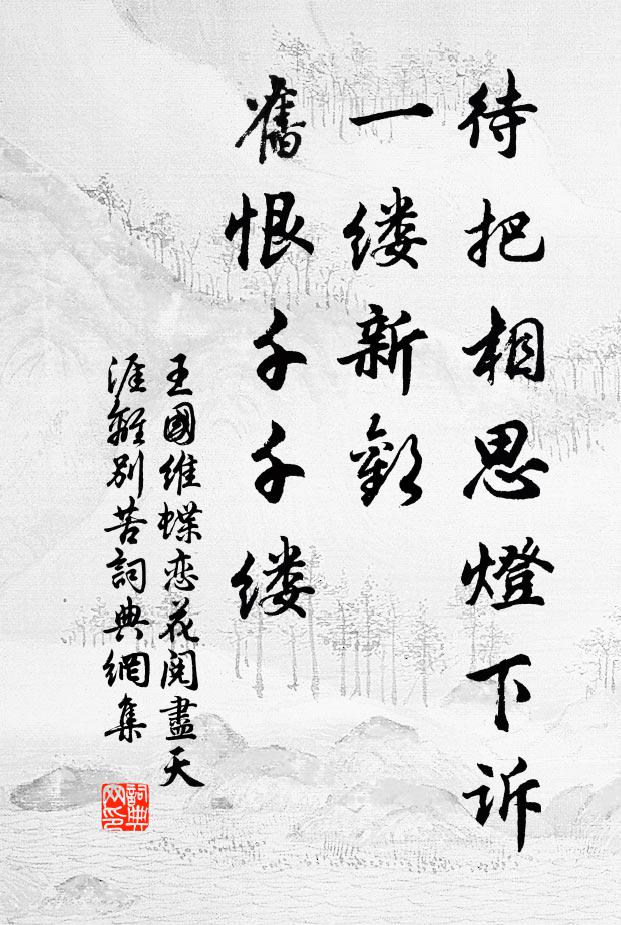 待把相思燈下诉
一缕新歡
舊恨千千缕
王國維蝶恋花閱盡天
涯離别苦詞典網集
詞典网印